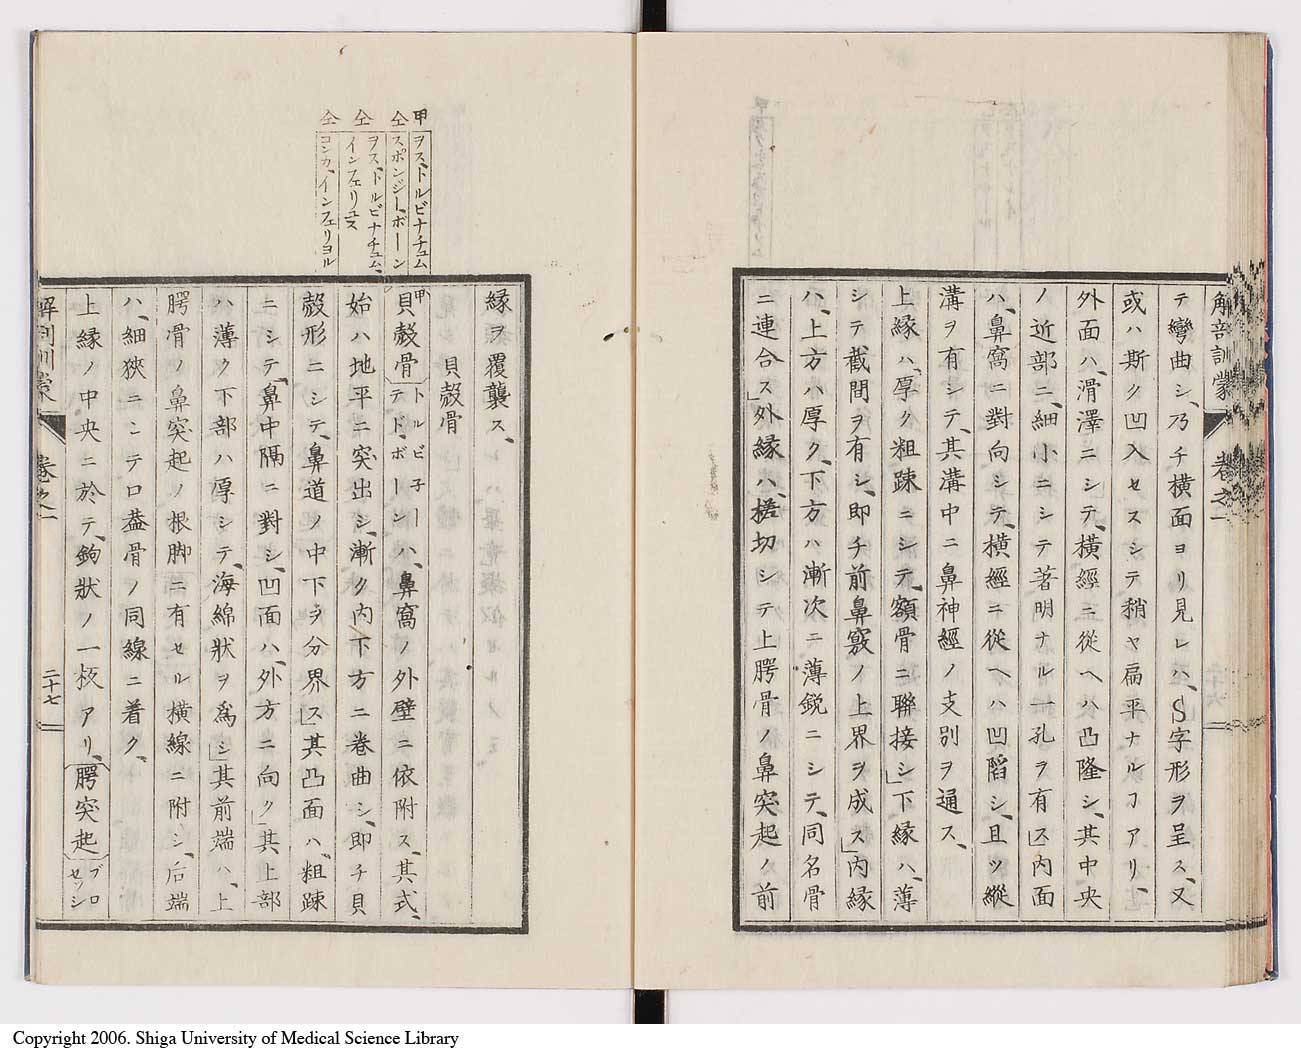 解剖訓蒙 卷之一
テ彎曲シ、乃チ橫面ヨリ見レハ、S字形ヲ呈ス、又
或ハ斯ク凹入セスシテ稍ヤ扁平ナルヿアリ、
外面ハ、滑澤ニシテ、橫經ニ從ヘハ凸隆シ、其中央
ノ近部ニ、細小ニシテ著明ナル一孔ヲ有ス」內面
ハ、鼻窩ニ對向シテ、橫經ニ從ヘハ凹䧟シ、且ツ縱
溝ヲ有シテ、其溝中ニ鼻神經ノ支別ヲ通ス、
上緣ハ、厚ク粗踈ニシテ、額骨ニ聯接シ」下緣ハ、薄
シテ截間ヲ有シ、即チ前鼻竅ノ上界ヲ成ス」內緣
ハ、上方ハ厚ク、下方ハ漸次ニ薄銳ニシテ、同名骨
ニ連合ス」外緣ハ、槎切シテ上腭骨ノ鼻突起ノ前
緣ヲ覆襲ス、
貝殼骨
甲
貝殼骨 トルビ子ーテドボーン ハ、鼻窩ノ外壁ニ依附ス、其式、
始ハ地平ニ突出シ、漸ク內下方ニ卷曲シ、即チ貝
殼形ニシテ、鼻道ノ中下ヲ分界ス」其凸面ハ、粗踈
ニシテ、鼻中隔ニ對シ、凹面ハ、外方ニ向ク」其上部
ハ薄ク下部ハ厚シテ、海綿狀ヲ爲シ」其前端ハ、上
腭骨ノ鼻突起ノ根脚ニ有セル橫線ニ附シ、后端
ハ、細狹ニシテ口蓋骨ノ同線ニ着ク、
上緣ノ中央ニ於テ、鉤狀ノ一板アリ、腭突起 プロセッシ
解剖訓蒙 卷之一 二十七
甲 ヲス、トルビナチュム
仝 スポンジーボーン
仝 ヲス、トルビナチュム、
インフェリュス
仝 コンカ、インフェリヨル
Copyright 2006. Shiga University of Medical Science Library